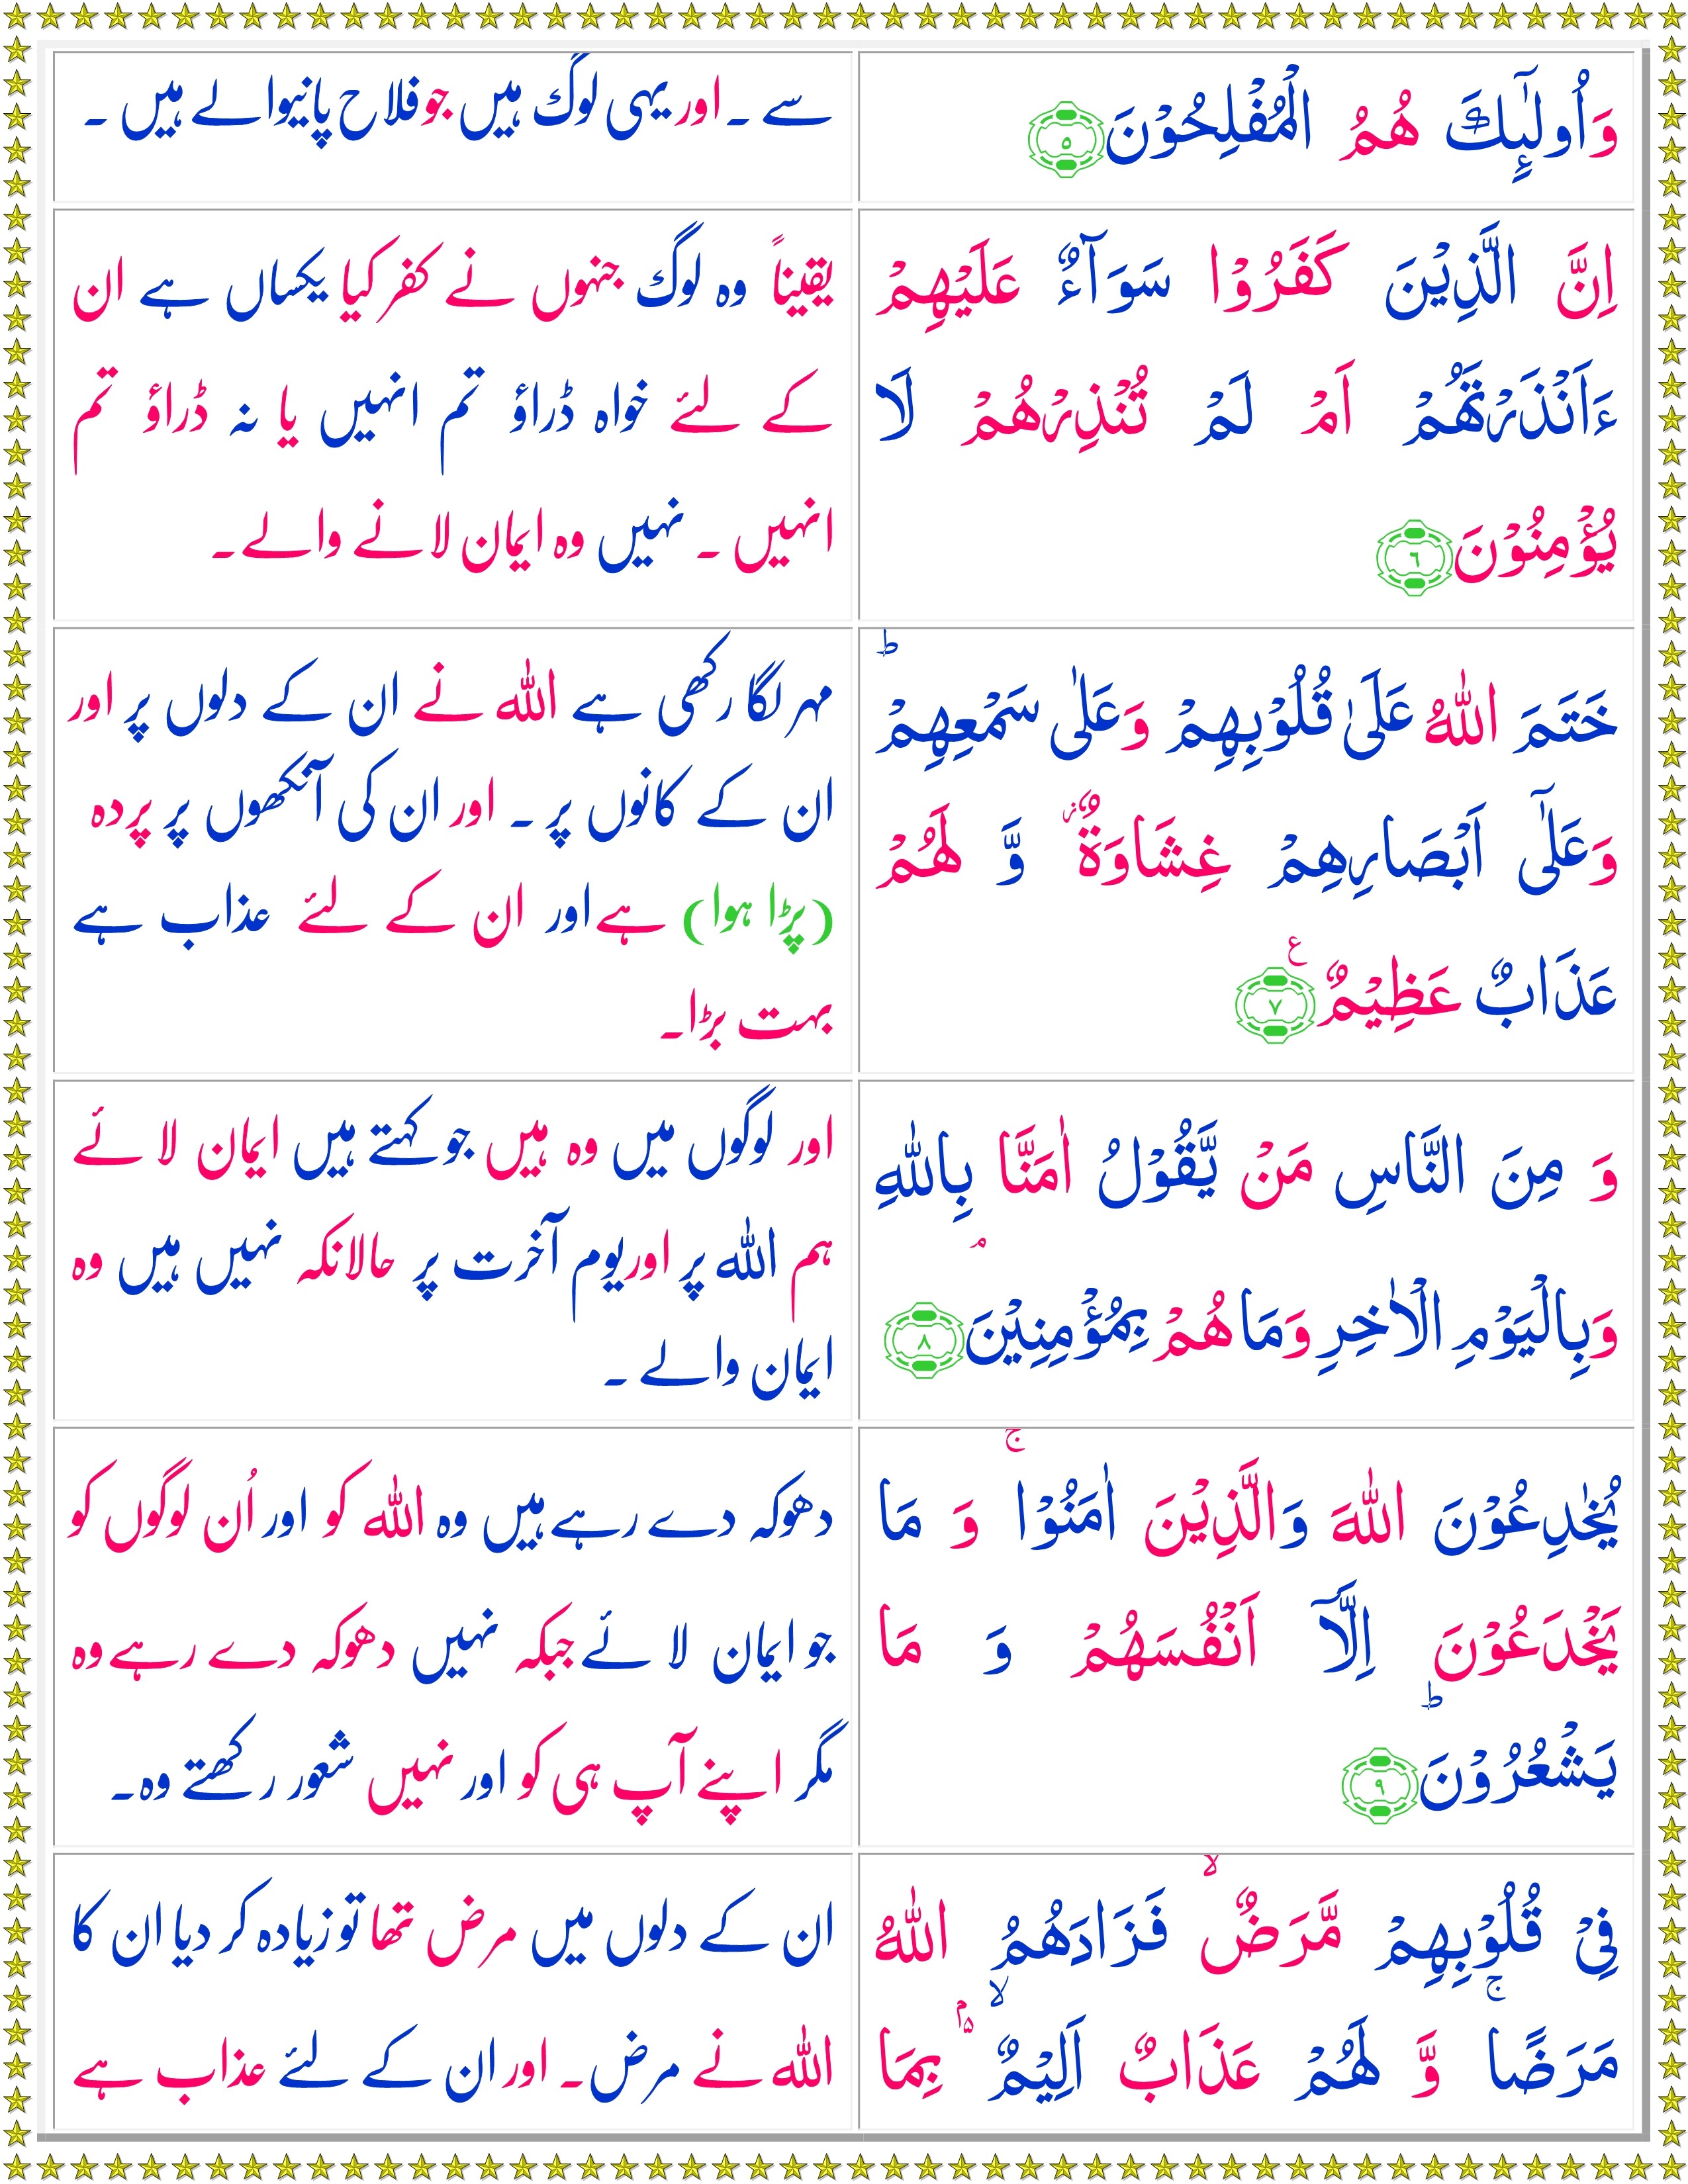 وَاُولٰٓئِكَ هُمُ الْمُفْلِحُوْنَ ۵
سے ۔ اور یہی لوگ ہیں جو فلاح پانیوالے ہیں ۔
اِنَّ الَّذِيْنَ كَفَرُوْا سَوَآءٌ عَلَيْهِمْ
ءَاَنْذَرْتَهُمْ اَمْ لَمْ تُنْذِرْهُمْ لَا
يُؤْمِنُوْنَ ٦
یقیناً وہ لوگ جنہوں نے کفر کیا یکساں ہے ان
کے لئے خواہ ڈراؤ تم انہیں یا نہ ڈراؤ تم
انہیں ۔ نہیں وہ ایمان لانے والے۔
خَتَمَ اللّٰهُ عَلَىٰ قُلُوْبِهِمْ وَعَلٰى سَمْعِهِمْ ؕ
وَعَلٰٓى اَبْصَارِهِمْ غِشَاوَةٌ ز وَّ لَهُمْ
عَذَابٌ عَظِيْمٌ ۷ ع
مہر لگا رکھی ہے اللہ نے ان کے دلوں پر اور
ان کے کانوں پر ۔ اور ان کی آنکھوں پر پردہ
(پڑا ہوا) ہے اور ان کے لئے عذاب ہے
بہت بڑا۔
وَ مِنَ النَّاسِ مَنْ يَّقُوْلُ اٰمَنَّا بِاللّٰهِ
وَبِالْيَوْمِ الْاٰخِرِ وَمَا هُمْ بِمُؤْمِنِيْنَ ۘ ۸
اور لوگوں میں وہ ہیں جو کہتے ہیں ایمان لائے
ہم اللہ پر اور یوم آخرت پر حالانکہ نہیں ہیں وہ
ایمان والے ۔
يُخٰدِعُوْنَ اللّٰهَ وَالَّذِيْنَ اٰمَنُوْا ۚ وَ مَا
يَخْدَعُوْنَ اِلَّآ اَنْفُسَهُمْ وَ مَا
يَشْعُرُوْنَ ؕ ۹
دھوکہ دے رہے ہیں وہ اللہ کو اور اُن لوگوں کو
جو ایمان لائے جبکہ نہیں دھوکہ دے رہے وہ
مگر اپنے آپ ہی کو اور نہیں شعور رکھتے وہ۔
فِىْ قُلُوْبِهِمْ مَّرَضٌ ۙ فَزَادَهُمُ اللّٰهُ
مَرَضًا ۚ وَّ لَهُمْ عَذَابٌ اَلِيْمٌ ۙ ۵ م بِمَا
ان کے دلوں میں مرض تھا تو زیادہ کر دیا ان کا
اللہ نے مرض۔ اور ان کے لئے عذاب ہے